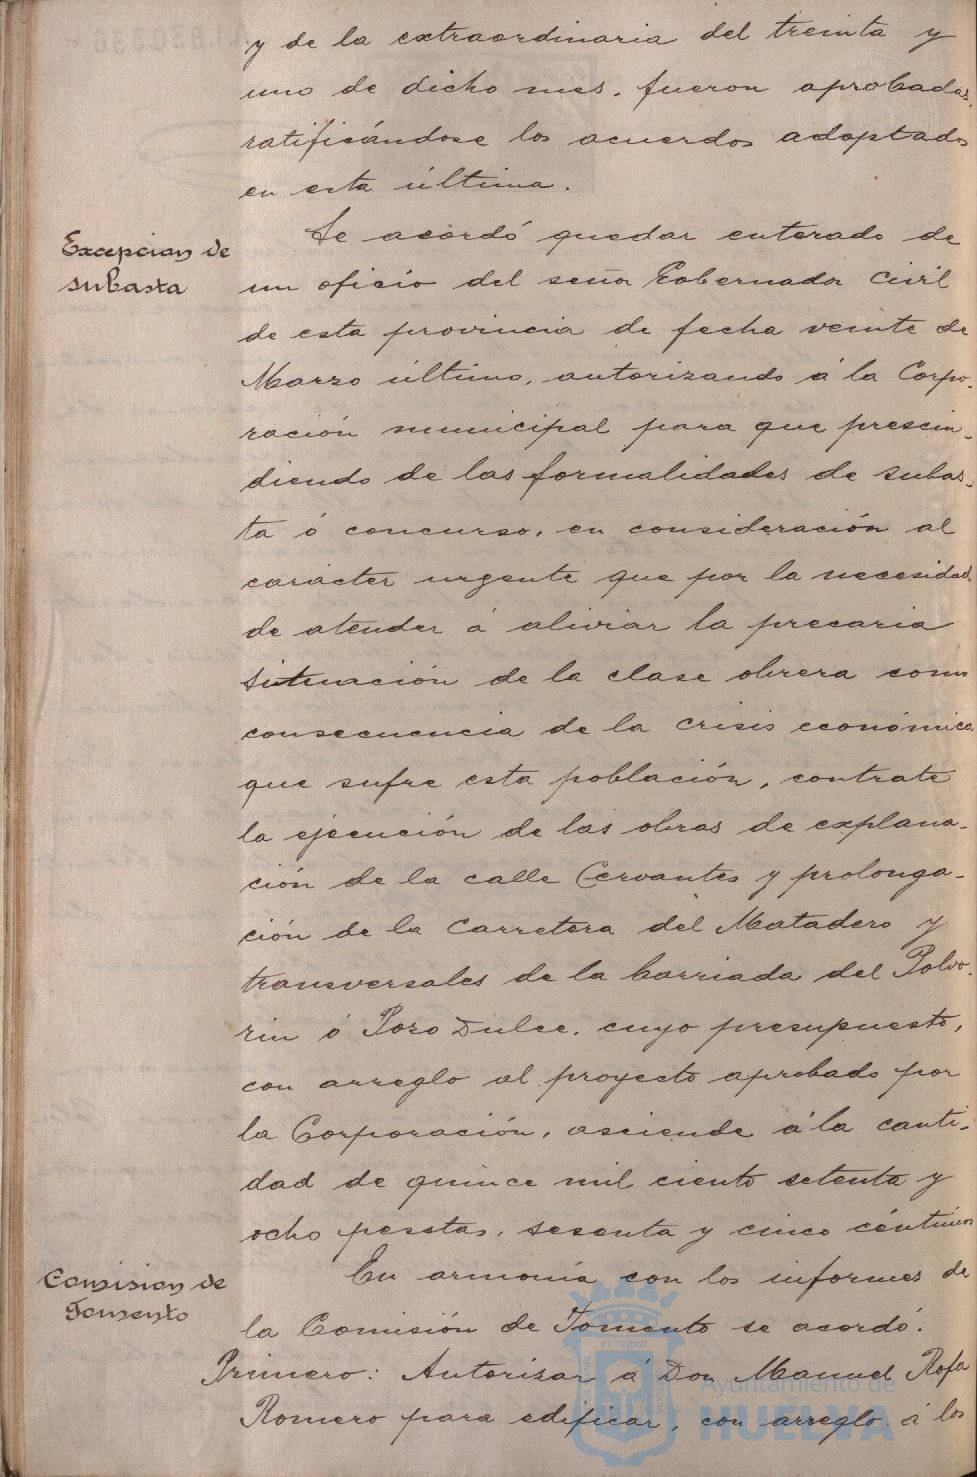 y de la extraordinaria del treinta y
uno de dicho mes, fueron aprobadas,
ratificándose los acuerdos adoptados
en esta última.
Excepcion de
subasta
Se acordó quedar enterado de
un oficio del señor Gobernador Civil
de esta provincia de fecha veinte de
Marzo último, autorizando á la Corpo-
ración municipal para que prescin-
diendo de las formalidades de subas-
ta ó concurso, en consideración al
carácter urgente que por la necesidad
de atender á aliviar la precaria
situación de la clase obrera como
consecuencia de la crisis económica
que sufre esta población, contrate
la ejecución de las obras de explana-
ción de la calle Cervantes y prolonga-
ción de la Carretera del Matadero y
transversales de la barriada del Polvo-
rin ó Pozo Dulce, cuyo presupuesto,
con arreglo al proyecto aprobado por
la Corporación, asciende á la canti-
dad de quince mil ciento setenta y
ocho pesetas, sesenta y cinco céntimos
Comision de
Fomento
En armonía con los informes de
la Comisión de Fomento se acordó:
Primero: Autorizar á Don Manuel Rofa
Romero para edificar, con arreglo á los
Ayuntamiento de
HUELVA